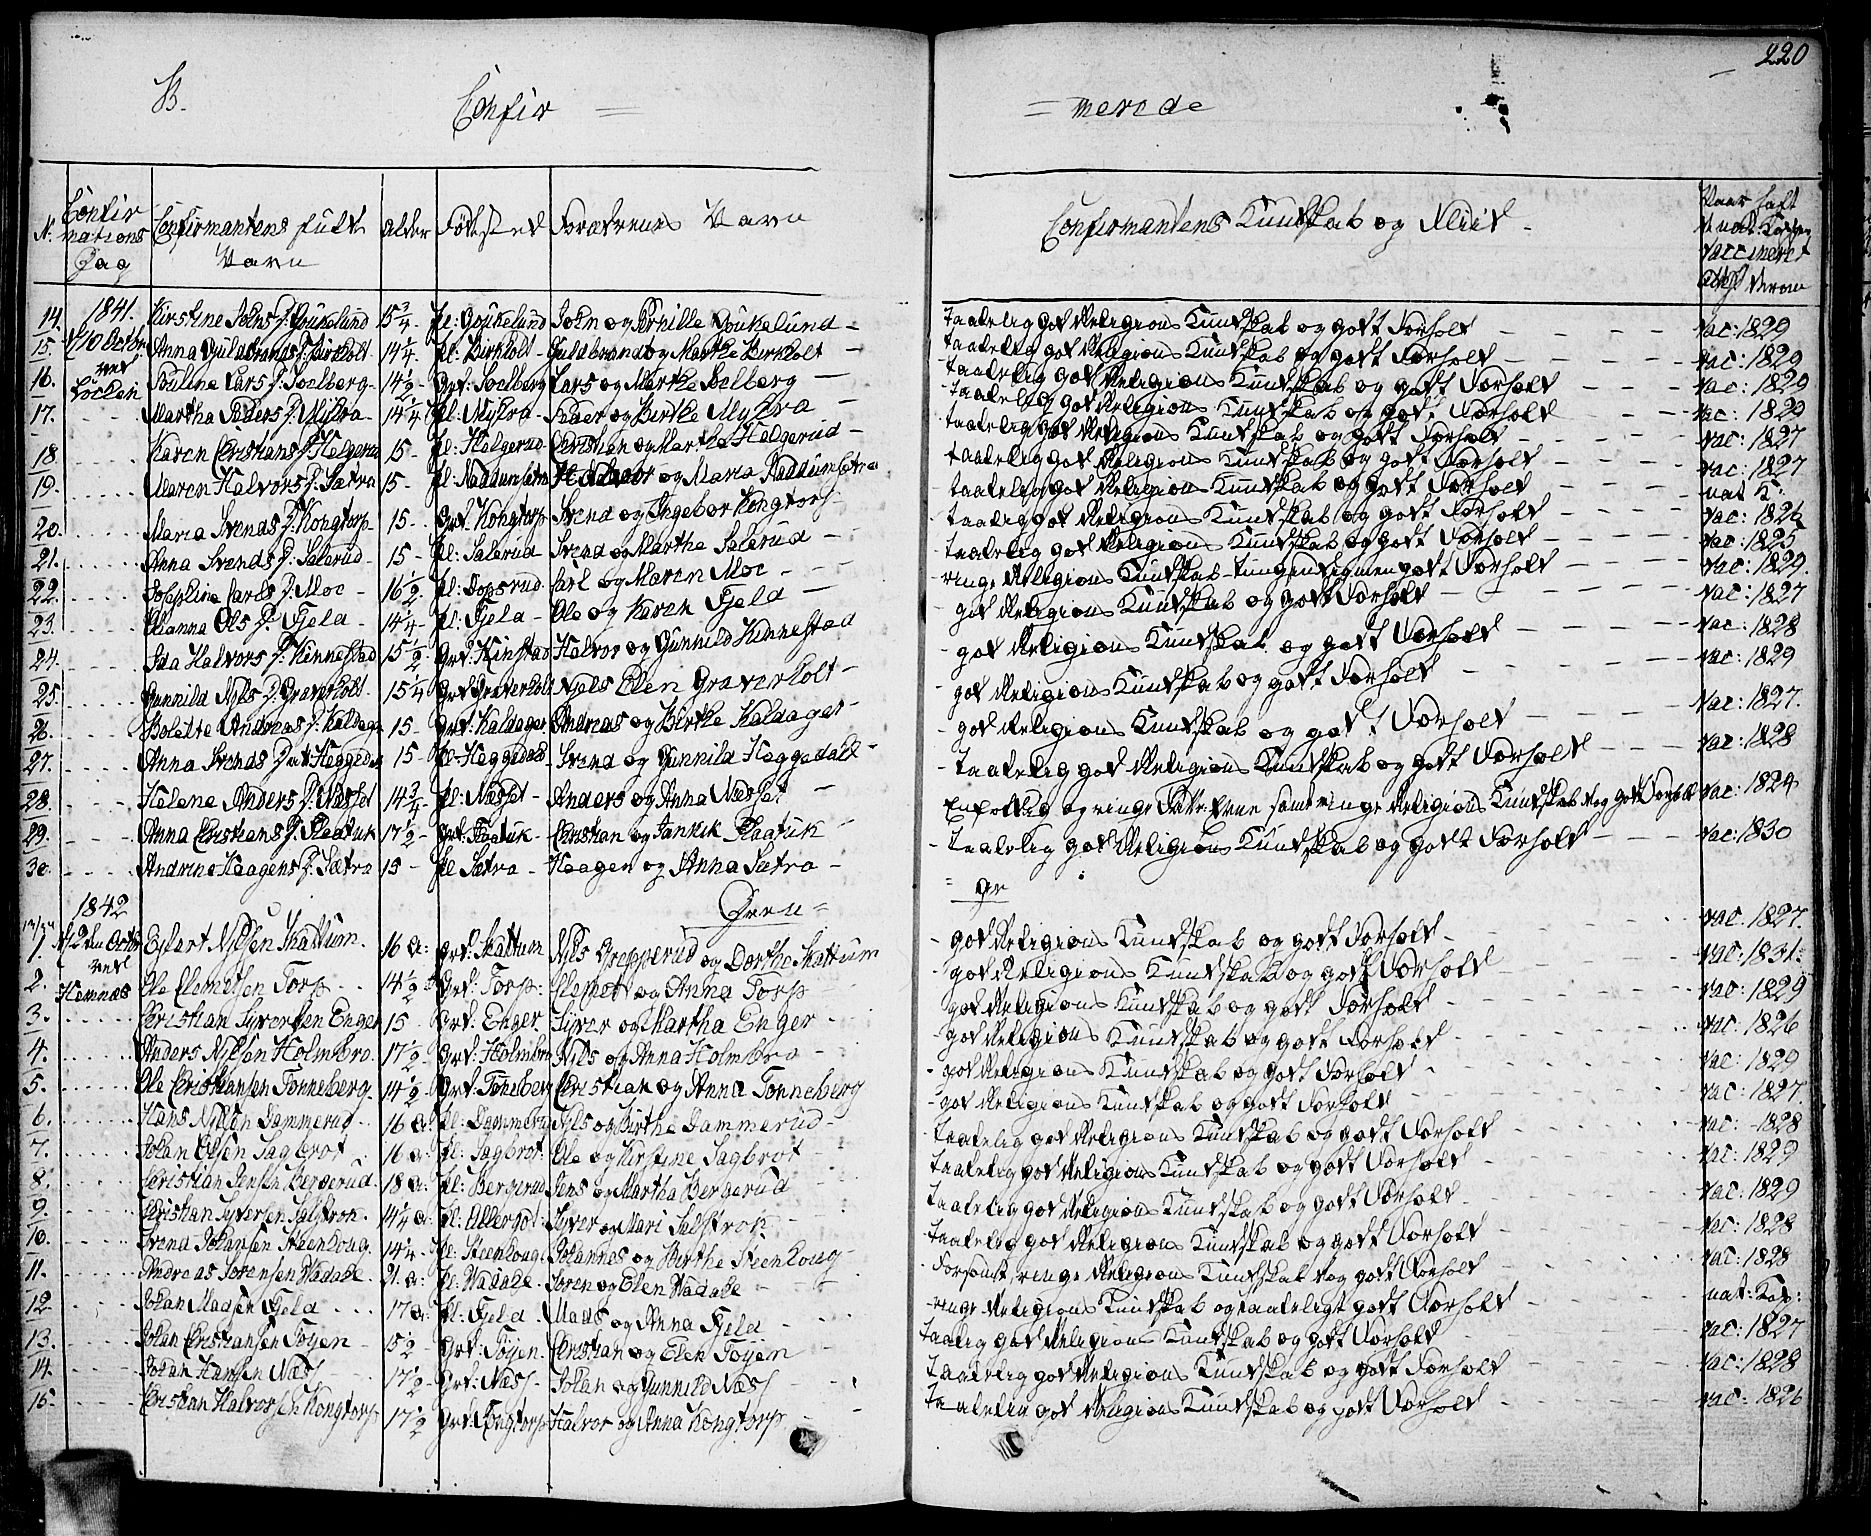 220
B. Confir = = merede
N. Confirmations Dag Confirmantens fulde Navn alder Fødested Forældrenes Navn Confirmantens Kundskab og Fliid Naar haft nat. Kopper vaccineret
14. 1841. Kirstine Johns D: Goukelund 15 3/4 pl: Goukelund John og Pernille Goukelund taalelig god Religions Kundskab og godt Forhold vac: 1829
15. 10 Octbr Anna Guldbrands D: Birkholt 14 1/4 pl: Birkholt Guldbrand og Marthe Birkholt taalelig god Religions Kundskab og godt Forhold vac: 1829
16. ved Løcken Pouline Lars D: Soelberg 14 1/2 Grd: Soelberg Lars og Marthe Soelberg taalelig god Religions Kundskab og godt Forhold vac: 1829
17. Martha Peders D: Myhra 14 1/4 pl: Myhra Peder og Birthe Myhra taalelig god Religions Kundskab og godt Forhold vac: 1829
18. Karen Christians D: Helgerud 15 pl: Helgerud Christian og Marthe Helgerud taalelig god Religions Kundskab og godt Forhold vac: 1827
19. Maren Halvors D: Sætra 15 pl: Raddumsætra Halvor og Maria Raddumsætra taalelig god Religions Kundskab og godt Forhold vac: 1827
20. Maria Svends D: Kongtorp 15 Grd: Kongtorp Svend og Ingebor Kongtorp taalelig god Religions Kundskab og godt Forhold nat K:
21. Anna Svends D: Salerud 15 pl: Salerud Svend og Marthe Salerud taalelig god Religions Kundskab og godt Forhold vac: 1826
22. Josephine Carls D: Moe 16 1/2 pl: Dopsrud Carl og Maren Moe ringe Religions Kundskab godt Forhold vac: 1825
23. Elianna Ols D: Fjela 14 1/4 pl: Fjela Ole og Karen Fjeld god Religions Kundskab og godt Forhold vac: 1827
24. Ida Halvors D: Kinnestad 15 1/2 Grd: Kinstad Halvor og Gunnild Kinnestad god Religions Kundskab og godt Forhold vac: 1828
25. Gunnild Njels D: Graverholt 15 1/4 Grd: Graverholt Njels Elen Graverholt god Religions Kundskab og godt Forhold vac: 1829
26. Bolette Andreas D: Kaldager 15 Grd: Kaldager Andreas og Birthe Kaldager god Religions Kundskab og godt Forhold vac: 1827.
27. Anna Svends Dat: Heggedal 15 pl: Heggedal Svend og Gunnild Heggedal taalelig god Religions Kundskab og godt Forhold vac: 1828
28. Helene Anders D: Næsset 14 3/4 pl: Næsset Anders og Anna Næsset Enfoldig og ringe samt ringe Religions Kundskab og godt Forhold vac: 1824
29. Anna Christians D: Flaatuk 17 1/2 Grd: Flaatuk Christian og Flaatuk Taalelig god Religions Kundskab og godt Forhold vac: 1830
30. Andrine Haagens D: Sætra 15 pl Sætra Haagen og Anna Sætra
1842 Dreng
1. 2den Octbr Ejlert Nilsen Skattum. 16 a: Grd: Skattum Nils Grepperud og Dorthe Skattum god Religions Kundskab og godt Forhold vac: 1827.
2. ved Hemnæs Ole Clemetsen Torp 14 1/2 Grd: Torp: Clemet og Anna Torp god Religions Kundskab og godt Forhold vac: 1831:
3. Christian Syversen Enger 15 Grd: Enger Syver og Martha Enger god Religions Kundskab og godt Forhold vac: 1829
4. Anders Nilsen Holmbro. 17 1/2 Grd: Holmbro Nils og Anna Holmbro god Religions Kundskab og godt Forhold vac: 1826
5. Ole Christiansen Tonneberg 14 1/2 Grd: Toneberg Christian og Anna Tonneberg god Religions Kundskab og godt Forhold vac: 1829
6. Hans Nilsen Dammerud 16 a: pl: Dammerud Nils og Birthe Dammerud god Religions Kundskab og godt Forhold vac: 1827.
7. Johan Olsen Sagbrot 16 a: pl: Sagbrot Ole og Kirstine Sagbrot taalelig god Religions Kundskab og godt Forhold vac: 1828
8. Christian Jensen Bergerud. 18 a: pl: Bergerud Jens og Martha Bergerud taalelig god Religions Kundskab og godt Forhold vac: 1829
9. Christian Syversen Salstron. 14 1/4 a: pl: Allergot: Syver og Mari Salstron taalelig god Religions Kundskab og godt Forhold vac: 1829
10. Svend Johansen Steenhoug. 14 1/4 pl: Steenhoug Johannes og Birthe Steenhoug taalelig god Religions Kundskab og godt Forhold vac: 1828
11. Andreas Sorensen Vadahl. 21 a: pl: Vadahl. Soren og Elen Vadahl Forsømt, ringe Religions Kundskab og godt Forhold vac: 1828
12 Johan Madsen Fjeld 17 a: pl: Fjeld Mads og Anna Fjeld ringe Religions Kundskab og taaleligt godt Forhold nat: Kop:
13. Johan Christiansen Toyen 15 1/2 Grd: Toyen. Christian og Elen Toyen taalelig god Religions Kundskab og godt Forhold vac: 1827
14. Johan Hansen Næss 17 1/2 Grd: Næss Johan og Gunnild Næss taalelig god Religions Kundskab og godt Forhold vac: 1828
15. Christian Halvorsen Kongtorp 17 1/2 Grd: Kongtorp Halvor og Anna Kongtorp taalelig god Religions Kundskab og godt Forhold vac: 1826